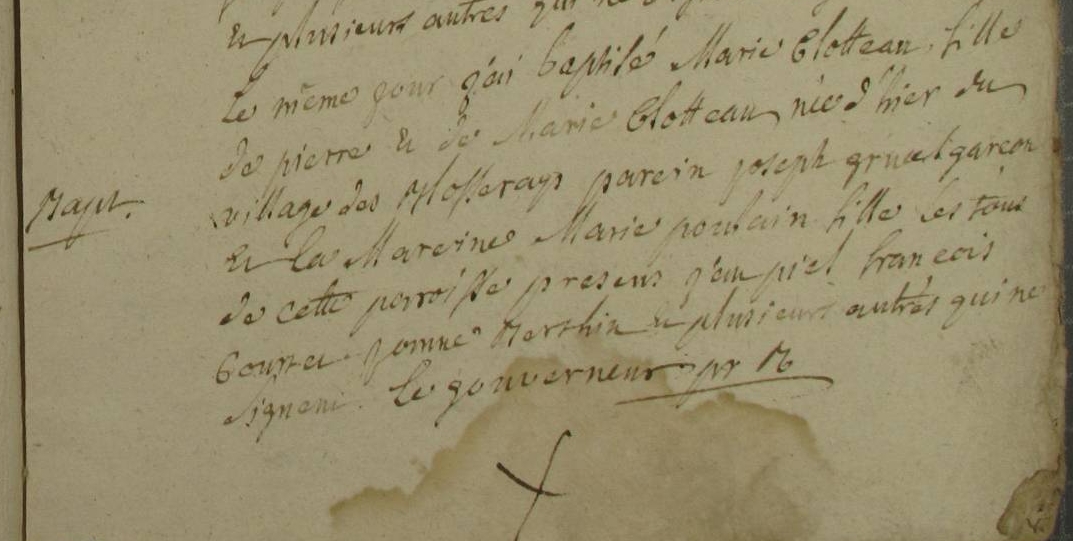 et plusieurs autres qui ne
le même jour j'ai baptisé Marie Clotteau, fille
de pierre et de Marie Clotteau née d'hier du
Bapt. village des parein joseph gruel garcon
et la Mareine Marie poulain fille les tous
de cette parroisse presens j'an piel francois
et plusieurs autres qui ne
signent. le gouverneur pr B